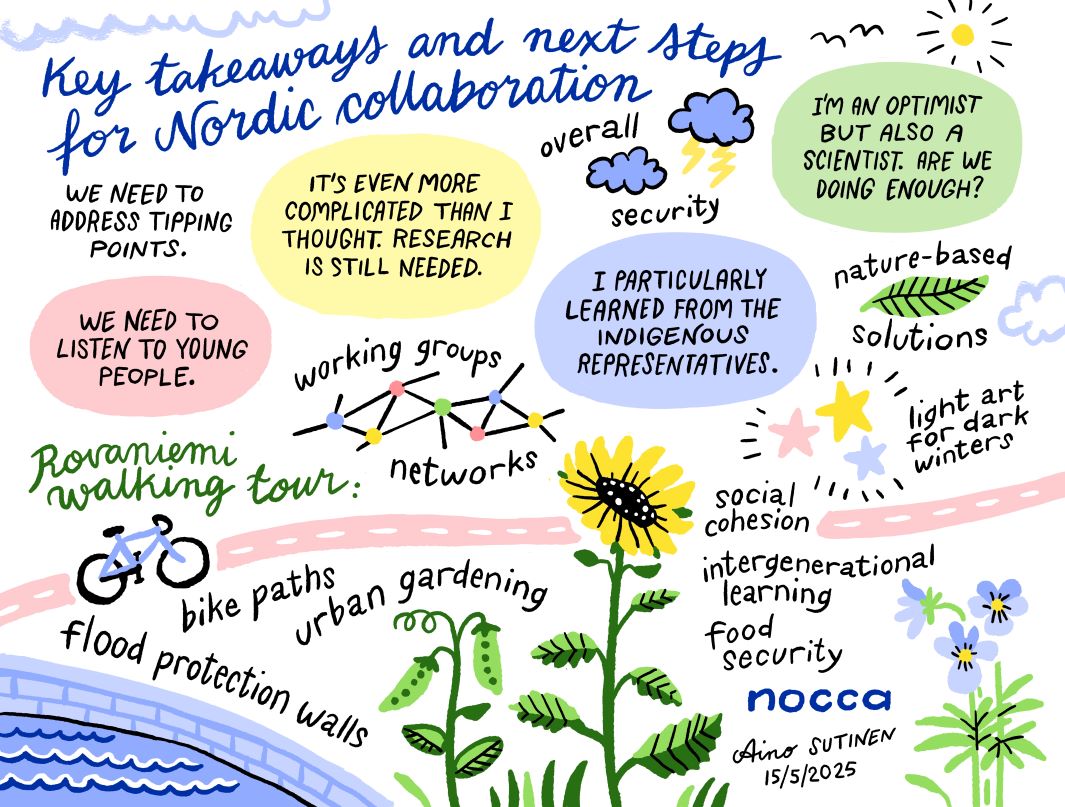 Key takeaways and next steps
for Nordic collaboration
WE NEED TO
ADDRESS TIPPING
POINTS.
IT'S EVEN MORE
COMPLICATED THAN I
THOUGHT. RESEARCH
IS STILL NEEDED.
overall
security
I'M AN OPTIMIST
BUT ALSO A
SCIENTIST. ARE WE
DOING ENOUGH?
WE NEED TO
LISTEN TO YOUNG
PEOPLE.
working groups
networks
I PARTICULARLY
LEARNED FROM THE
INDIGENOUS
REPRESENTATIVES.
nature-based
solutions
light art
for dark
winters
Rovaniemi
walking tour:
bike paths
urban gardening
flood protection walls
social
cohesion
intergenerational
learning
food
security
nocca
Aino SUTINEN
15/5/2025